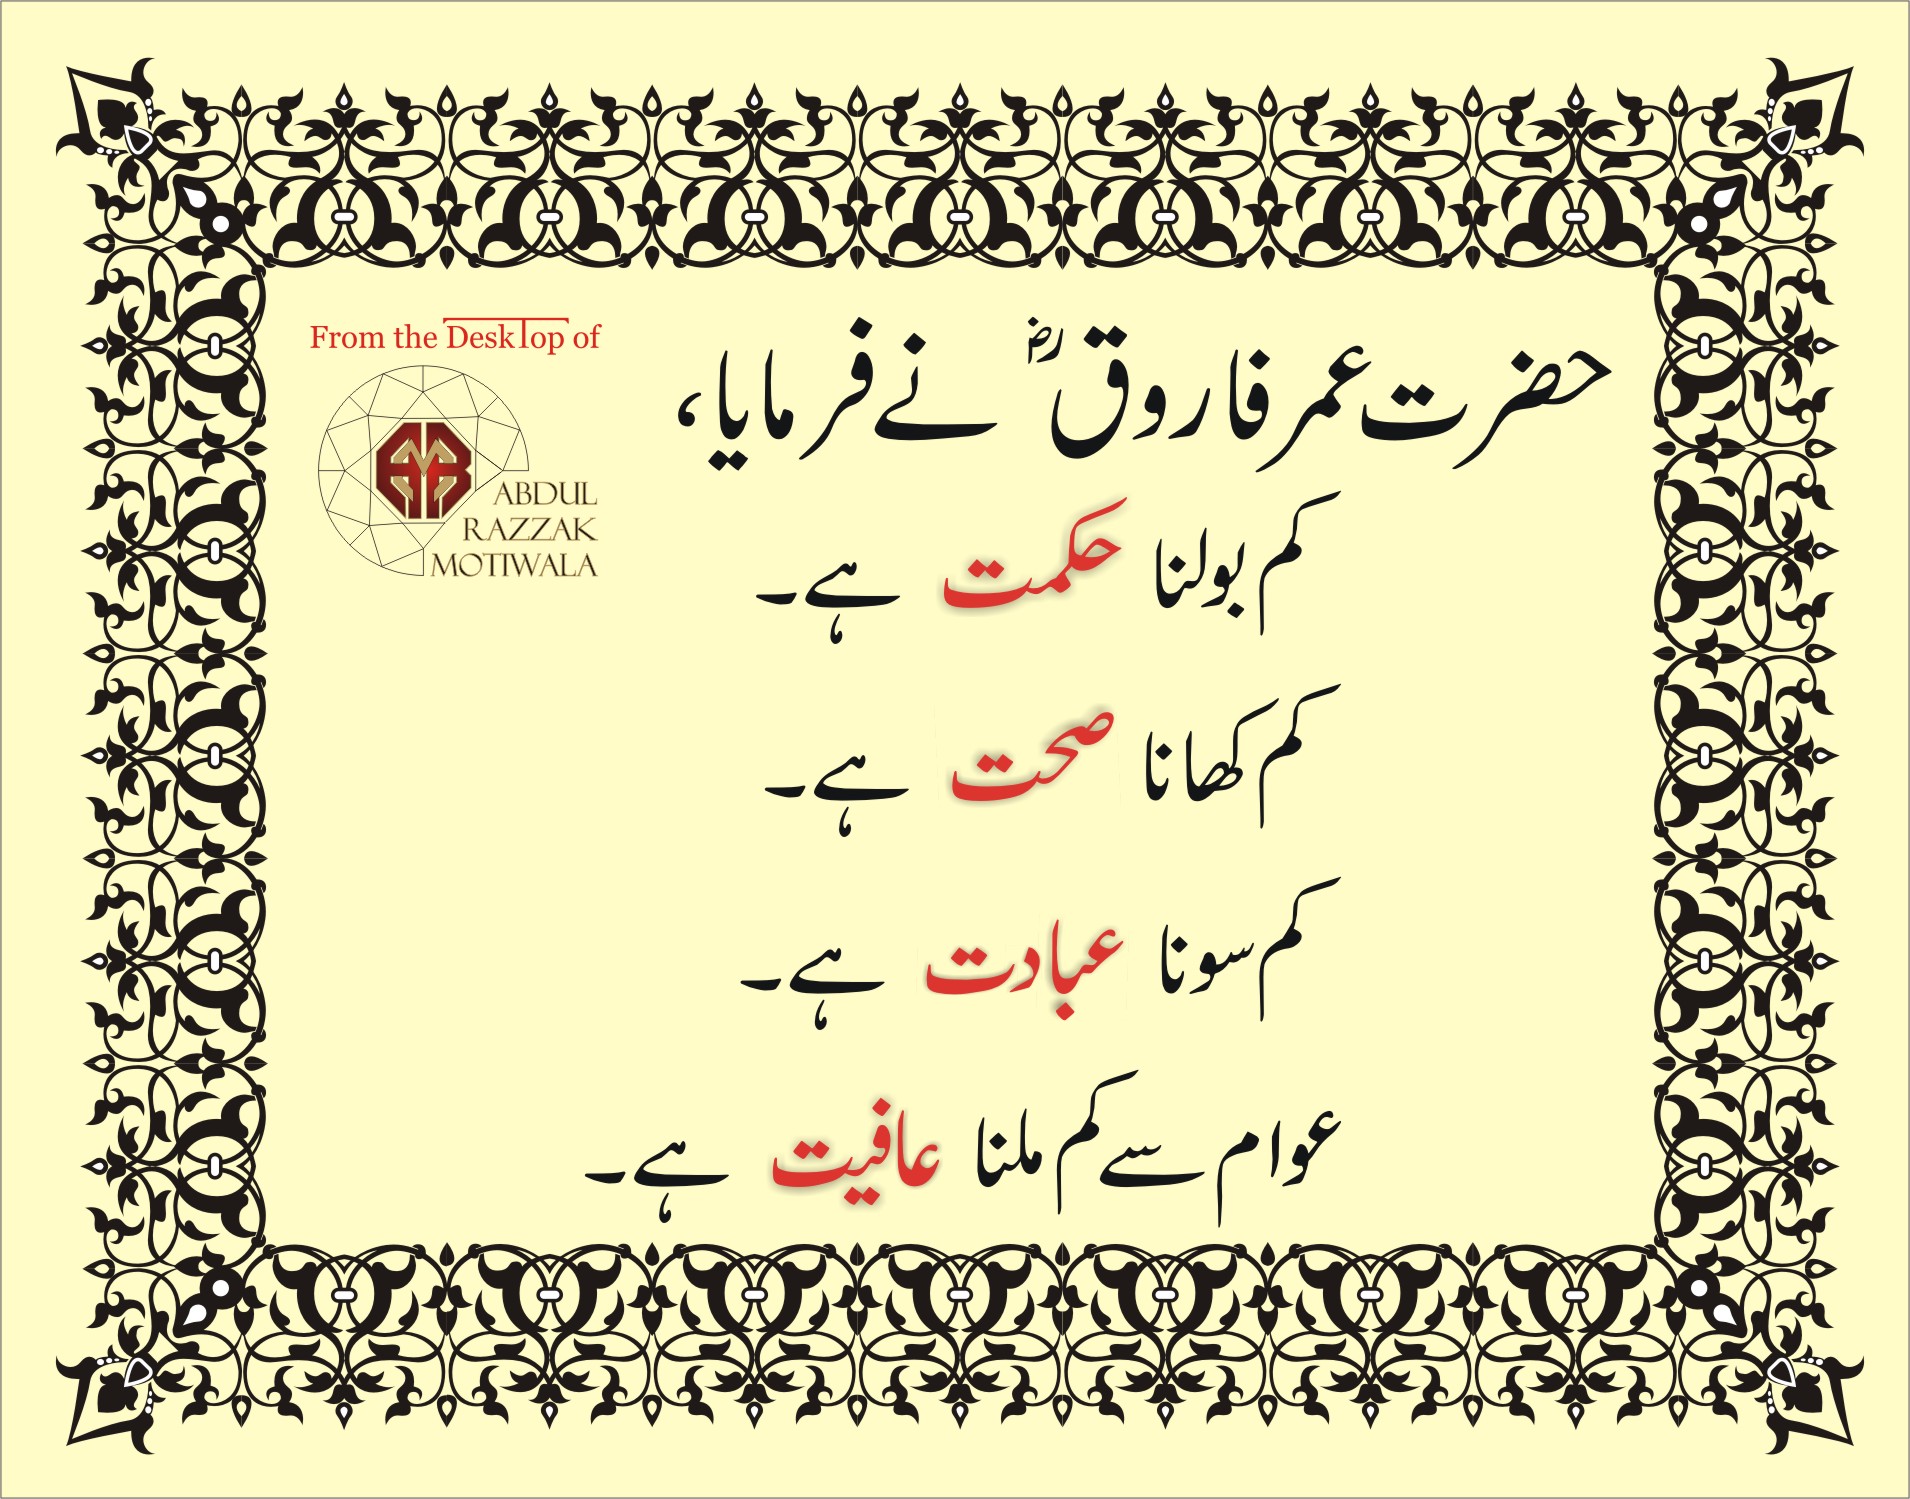 From the DeskTop of
ABDUL
RAZZAK
MOTIWALA
حضرت عمر فاروق ؓ نے فرمایا،
کم بولنا حکمت ہے۔
کم کھانا صحت ہے۔
کم سونا عبادت ہے۔
عوام سے کم ملنا عافیت ہے۔